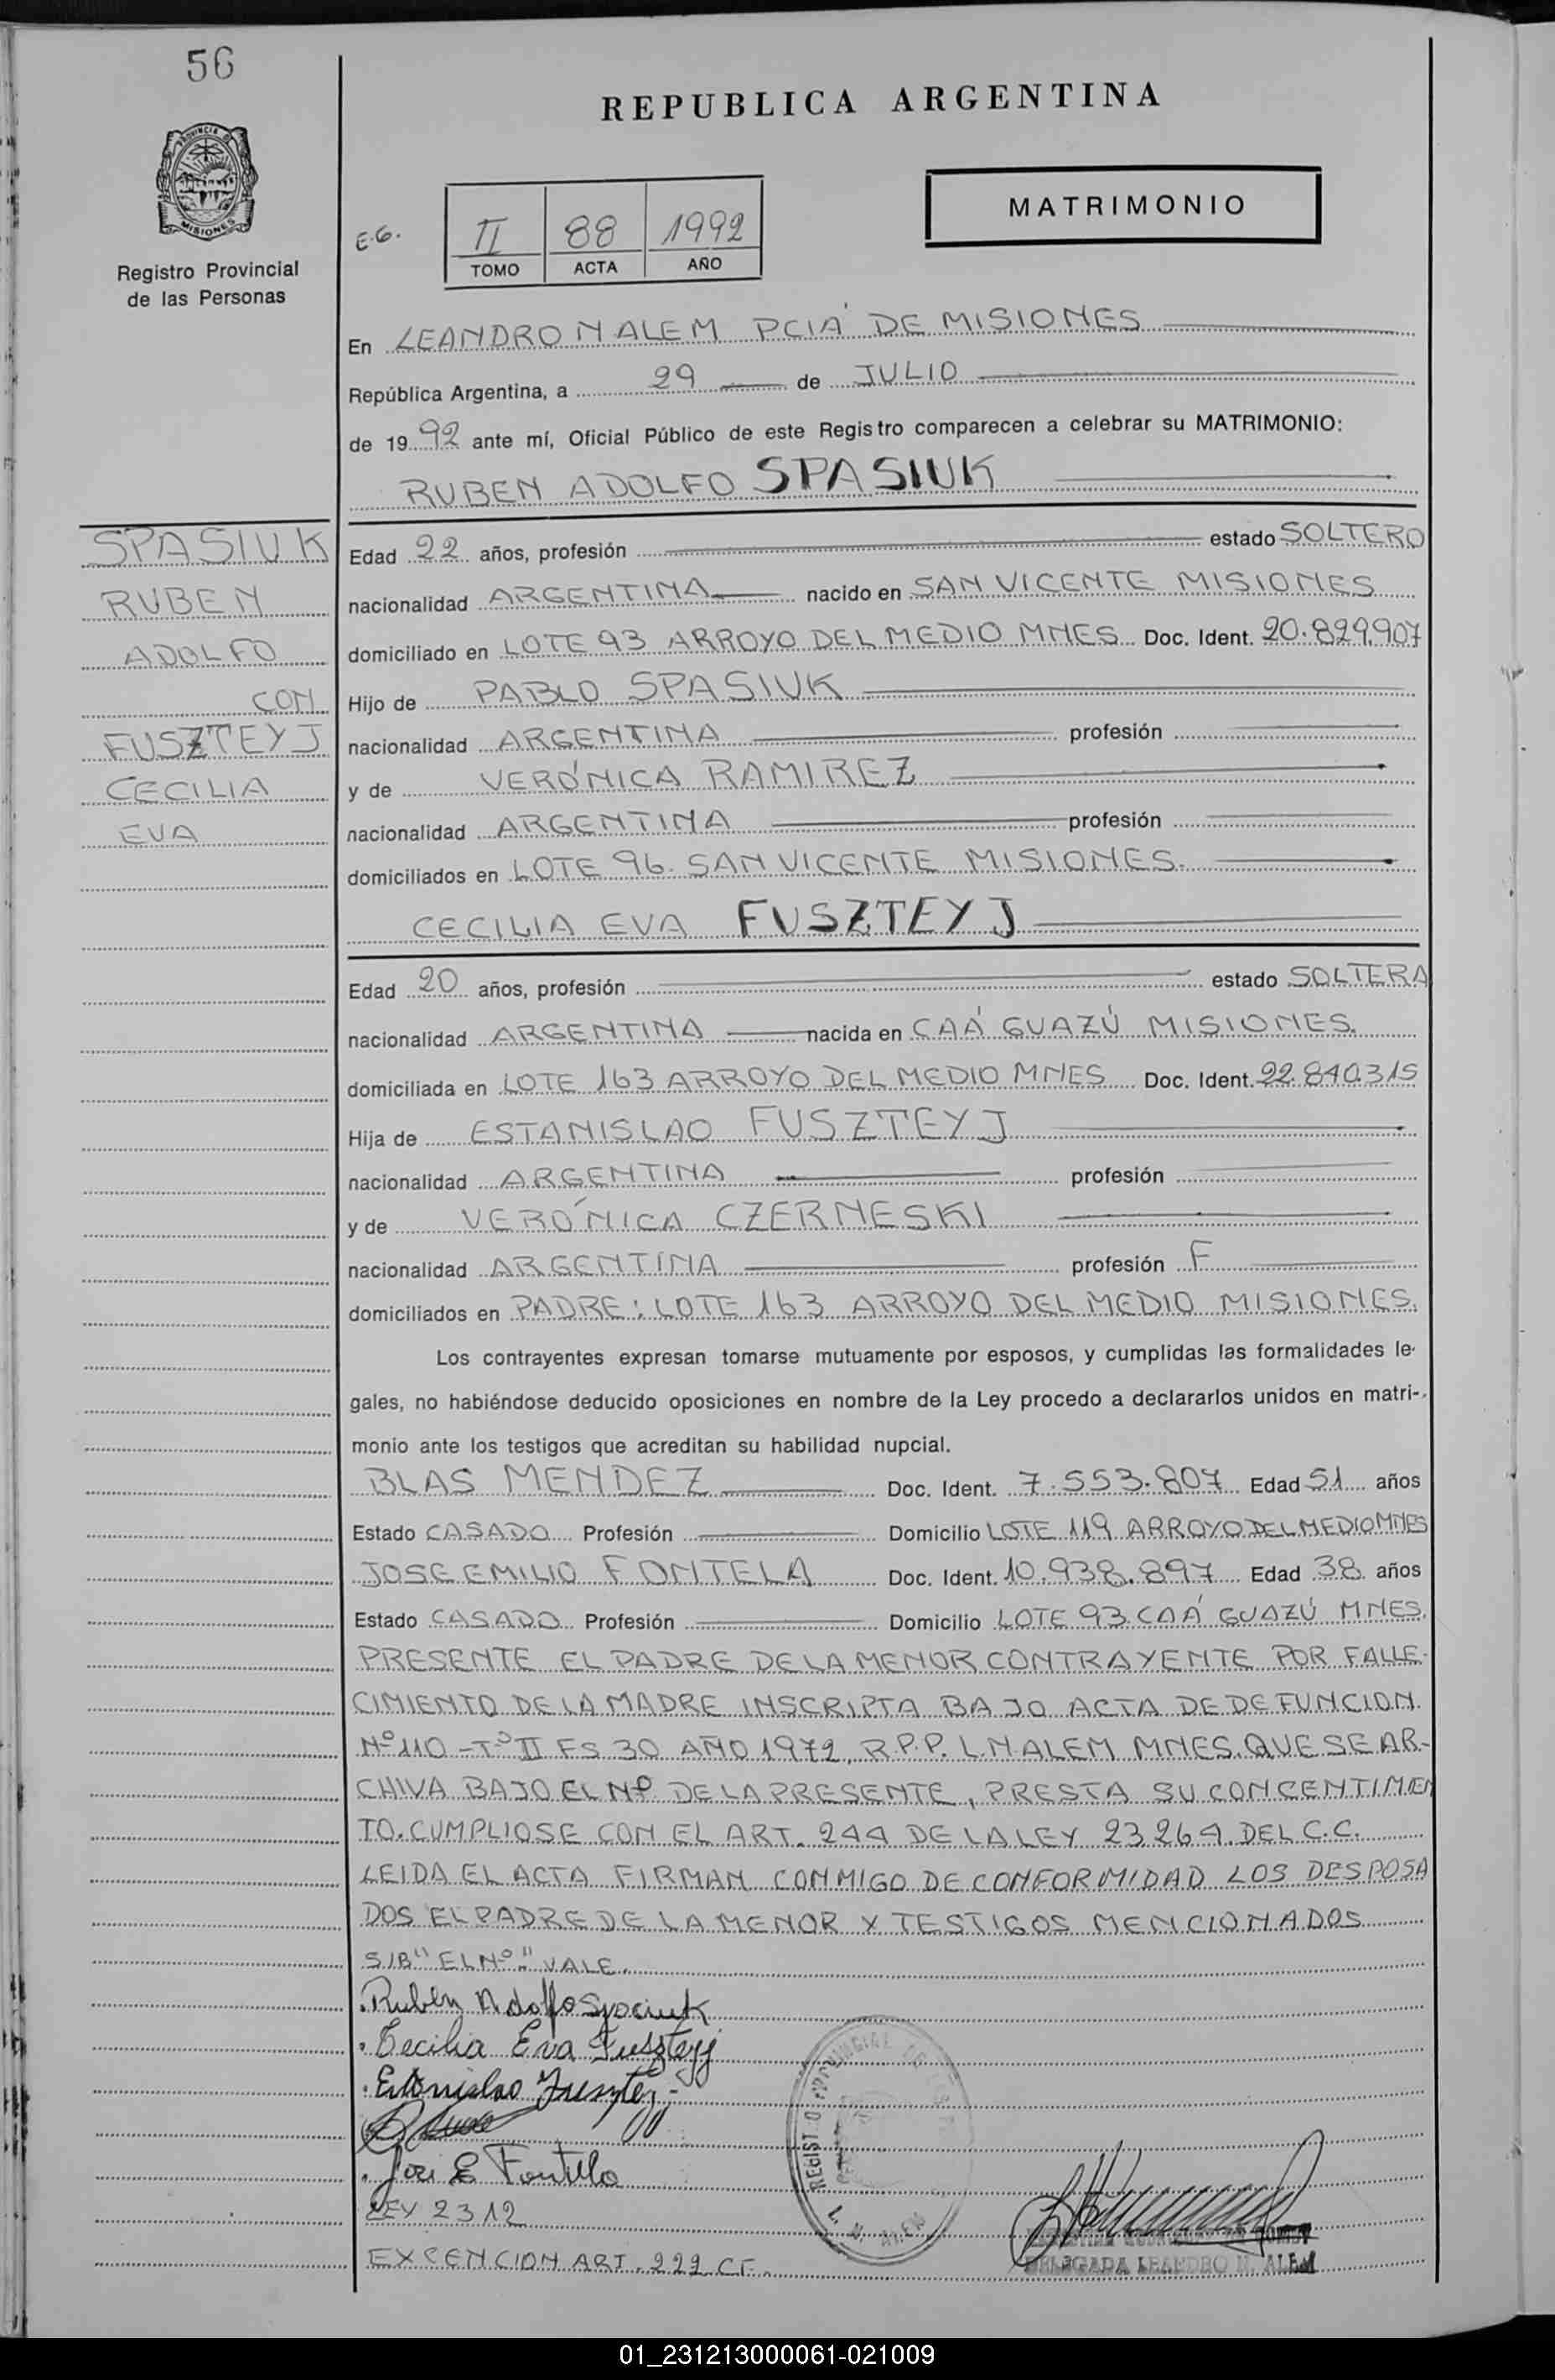 56
REPUBLICA ARGENTINA
PROVINCIA D
MISIONES
MATRIMONIO
E.G.
II 88 1992
TOMO ACTA AÑO
Registro Provincial
de las Personas
En LEANDRO N ALEM PCIA DE MISIONES
República Argentina, a 29 de JULIO
de 1992 ante mí, Oficial Público de este Registro comparecen a celebrar su MATRIMONIO:
RUBEN ADOLFO SPASIUK
SPASIUK
RUBEN
ADOLFO
CON
FUSZTEYJ
CECILIA
EVA
Edad 22 años, profesión estado SOLTERO
nacionalidad ARGENTINA nacido en SAN VICENTE MISIONES
domiciliado en LOTE 93 ARROYO DEL MEDIO MNES Doc. Ident. 20.829.907
Hijo de PABLO SPASIUK
nacionalidad ARGENTINA profesión
y de VERÓNICA RAMIREZ
nacionalidad ARGENTINA profesión
domiciliados en LOTE 96. SAN VICENTE MISIONES.
CECILIA EVA FUSZTEYJ
Edad 20 años, profesión estado SOLTERA
nacionalidad ARGENTINA nacida en CAÁ GUAZÚ MISIONES.
domiciliada en LOTE 163 ARROYO DEL MEDIO MNES Doc. Ident. 22.840.315
Hija de ESTANISLAO FUSZTEYJ
nacionalidad ARGENTINA profesión
y de VERÓNICA CZERNESKI
nacionalidad ARGENTINA profesión F
domiciliados en PADRE: LOTE 163 ARROYO DEL MEDIO MISIONES.
Los contrayentes expresan tomarse mutuamente por esposos, y cumplidas las formalidades le-
gales, no habiéndose deducido oposiciones en nombre de la Ley procedo a declararlos unidos en matri-
monio ante los testigos que acreditan su habilidad nupcial.
BLAS MENDEZ Doc. Ident. 7.553.807 Edad 51 años
Estado CASADO Profesión Domicilio LOTE 119 ARROYO DEL MEDIO MNES
JOSE EMILIO FONTELA Doc. Ident. 10.938.897 Edad 38 años
Estado CASADO Profesión Domicilio LOTE 93 CAÁ GUAZÚ MNES.
PRESENTE EL PADRE DE LA MENOR CONTRAYENTE POR FALLE-
CIMIENTO DE LA MADRE INSCRIPTA BAJO ACTA DE DEFUNCION.
Nº 110 - Tº II FS 30 AÑO 1972, R.P.P. L.N ALEM MNES. QUE SE AR-
CHIVA BAJO EL Nº DE LA PRESENTE, PRESTA SU CONCENTIMIEN
TO. CUMPLIOSE CON EL ART. 244 DE LA LEY 23264. DEL C.C.
LEIDA EL ACTA FIRMAN CONMIGO DE CONFORMIDAD LOS DESPOSA
DOS EL PADRE DE LA MENOR Y TESTIGOS MENCIONADOS
S/B "EL Nº" VALE.
Ruben Adolfo Spaciuk
Cecilia Eva Fuszteyj
Estanislao Fuszteyj
Jose E Fontela
LEY 2312
REGIST O PROVINCIAL DE
L. N. ALEM
DELEGADA LEANDRO N. ALEM
EXCENCION ART. 222 C.F.
01_231213000061-021009